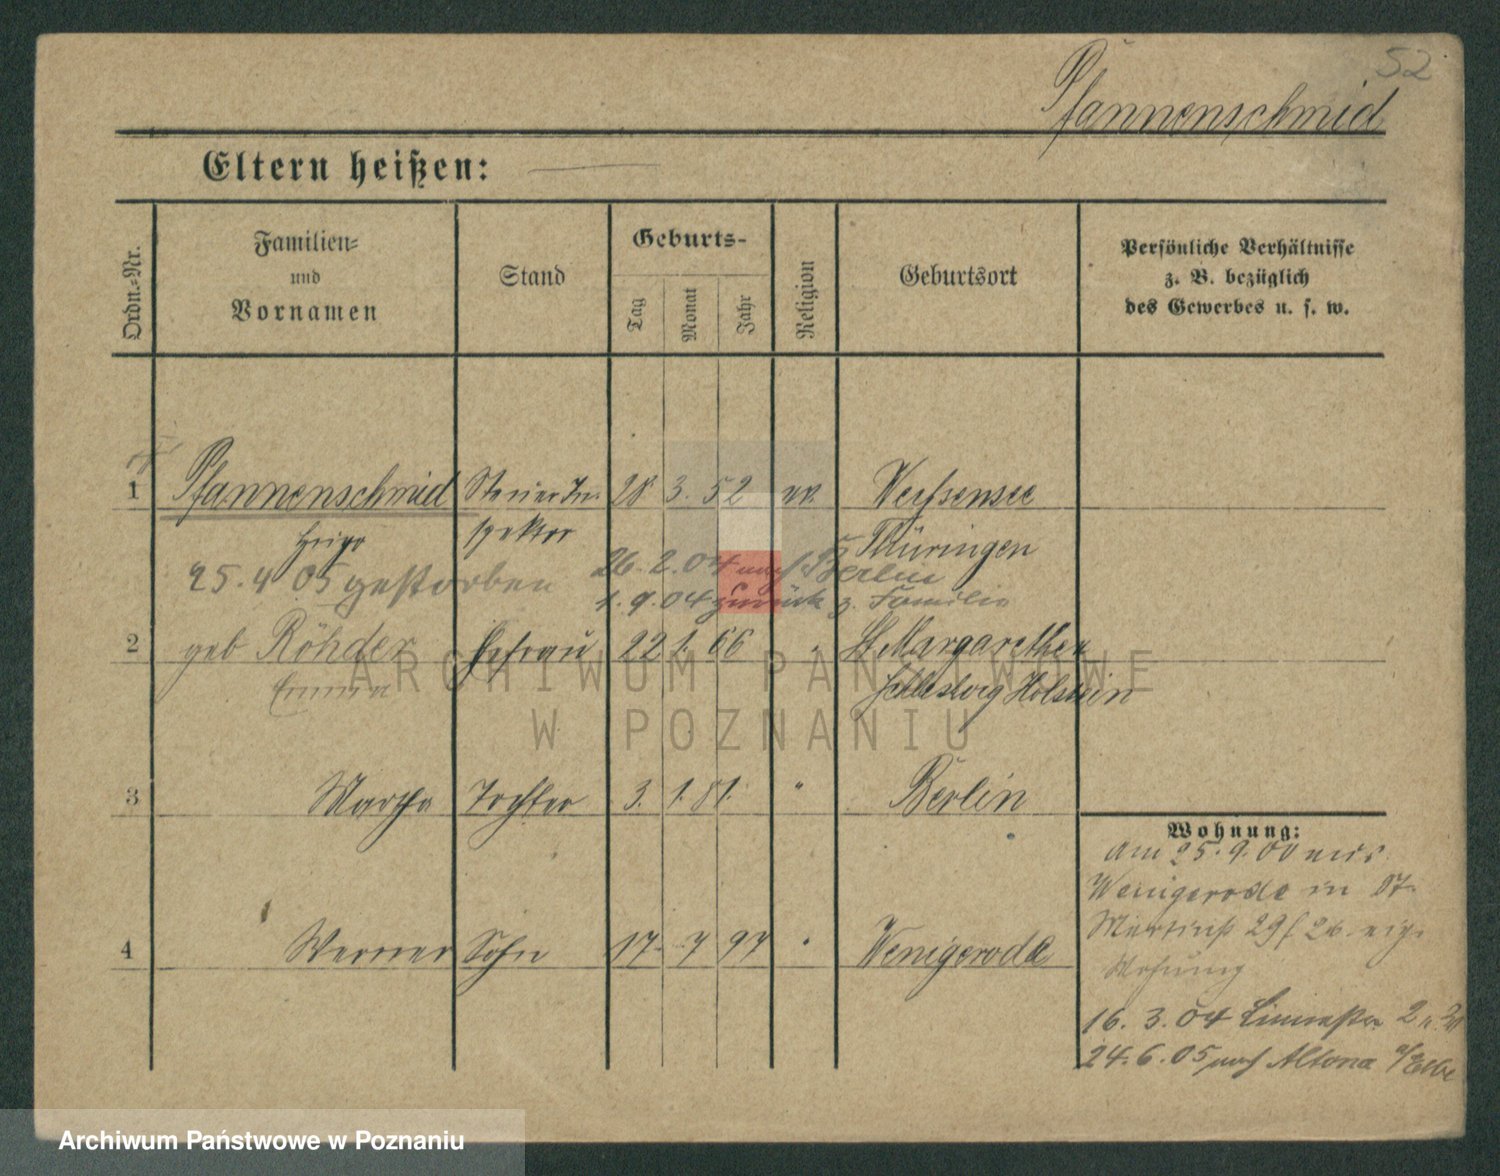 52
Pfannenschmid
Eltern heißen:
Ordn.-Nr.
Familien-
und
Vornamen
Stand
Geburts-
Tag
Monat
Jahr
Religion
Geburtsort
Persönliche Verhältnisse
z. B. bezüglich
des Gewerbes u. s. w.
1 Pfannenschmid Steuer In- 28 3. 52 ev. Weißensee
Hugo spektor Thüringen
25.4 05 gestorben 26.2.04 nach Berlin
1.9.04 zurück z. Familie
2 geb Röhder Ehefrau 22 1. 66 " St Margarethen
Emma Schleswig Holstein
3 Martha Tochter 3. 1. 81. " Berlin
4 Werner Sohn 17. 7 97 " Wenigerode
Wohnung:
am 25.9.00 aus
Wenigerode in St.
Martinst 29 eig.
Wohnung
16.3.04 2
24.6.05 nach Altona a/Elbe
ARCHIWUM PAŃSTWOWE
W POZNANIU
Archiwum Państwowe w Poznaniu